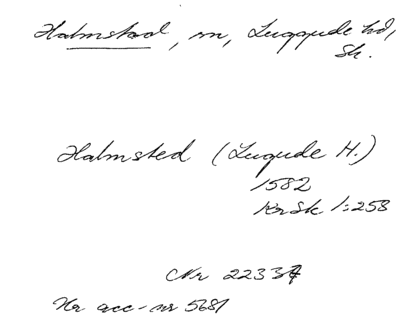 Halmstad, sn, Luggude hd,
Sk.
Halmsted (Lugude H.)
1582
KrSk 1:258
Nr 22337
Ur acc-nr 5681